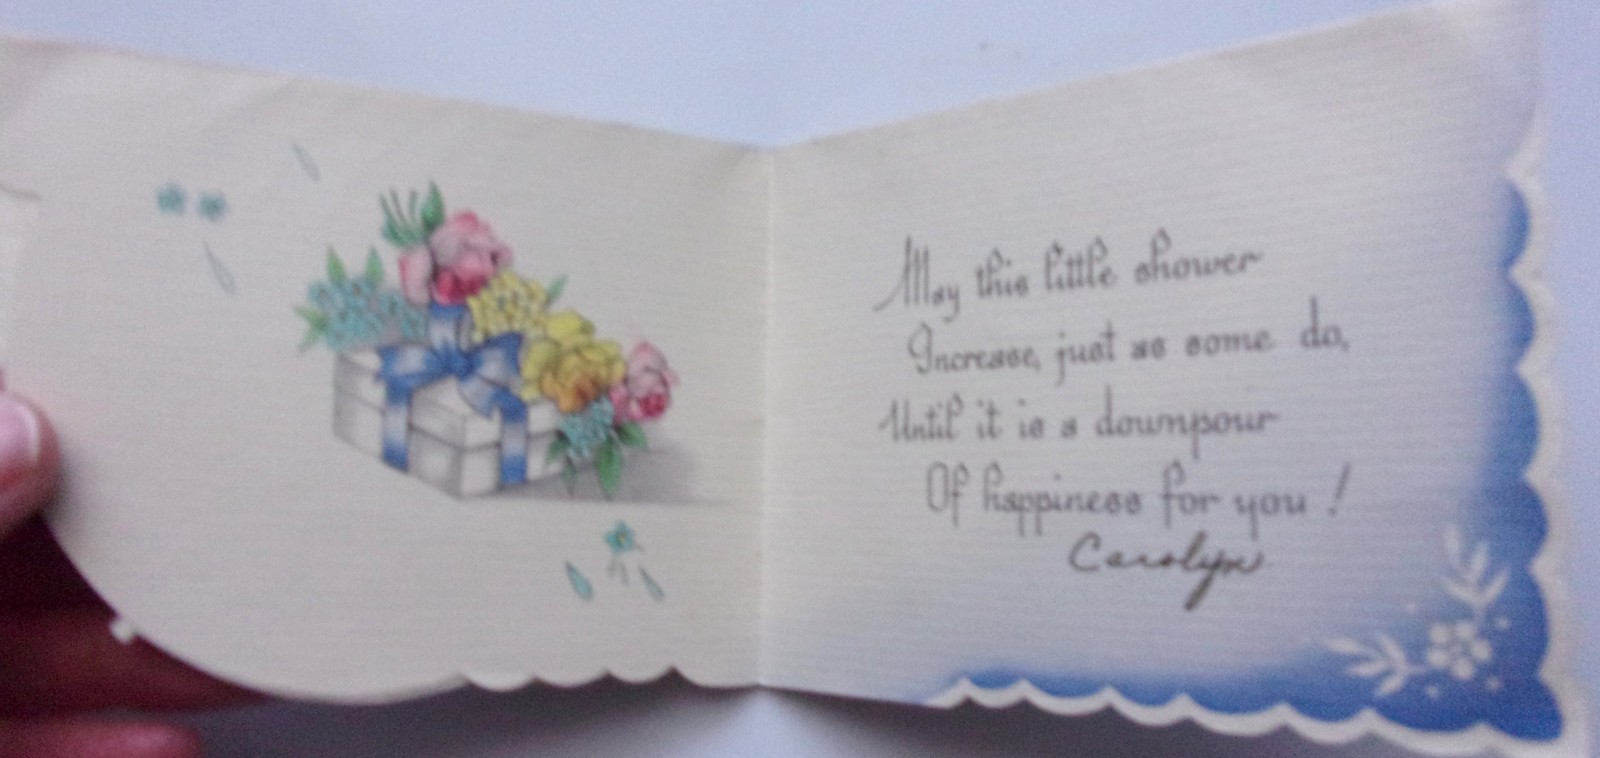 May this little shower
Increase, just as some do,
Until it is a downpour
Of happiness for you!
Carolyn